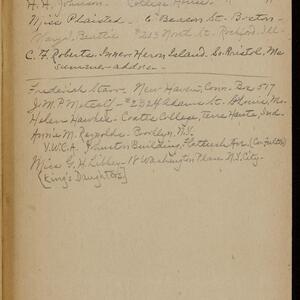 H. H. Johnson. College House.
Miss Plaisted - 6 Beacon St - Boston
Mays, Beattie #213 North St. Rockford, Ill -
C. F. Roberts - Inner Heron Island. So. Bristol, Me
Summer address -
Frederick Starr - New Haven, Conn. Box 577
J. M. P. Metcalf - #2324 Adams St. St Louis, Mo.
Helen Hawkes - Coates College, Terre Haute, Ind.
Annie M. Reynolds - Brooklyn N.Y.
Y.W.C.A. Johnston Building, Flatbush Ave.
Miss G. H. Libby - 18 Washington Place. N.Y. City -
[King's Daughters]